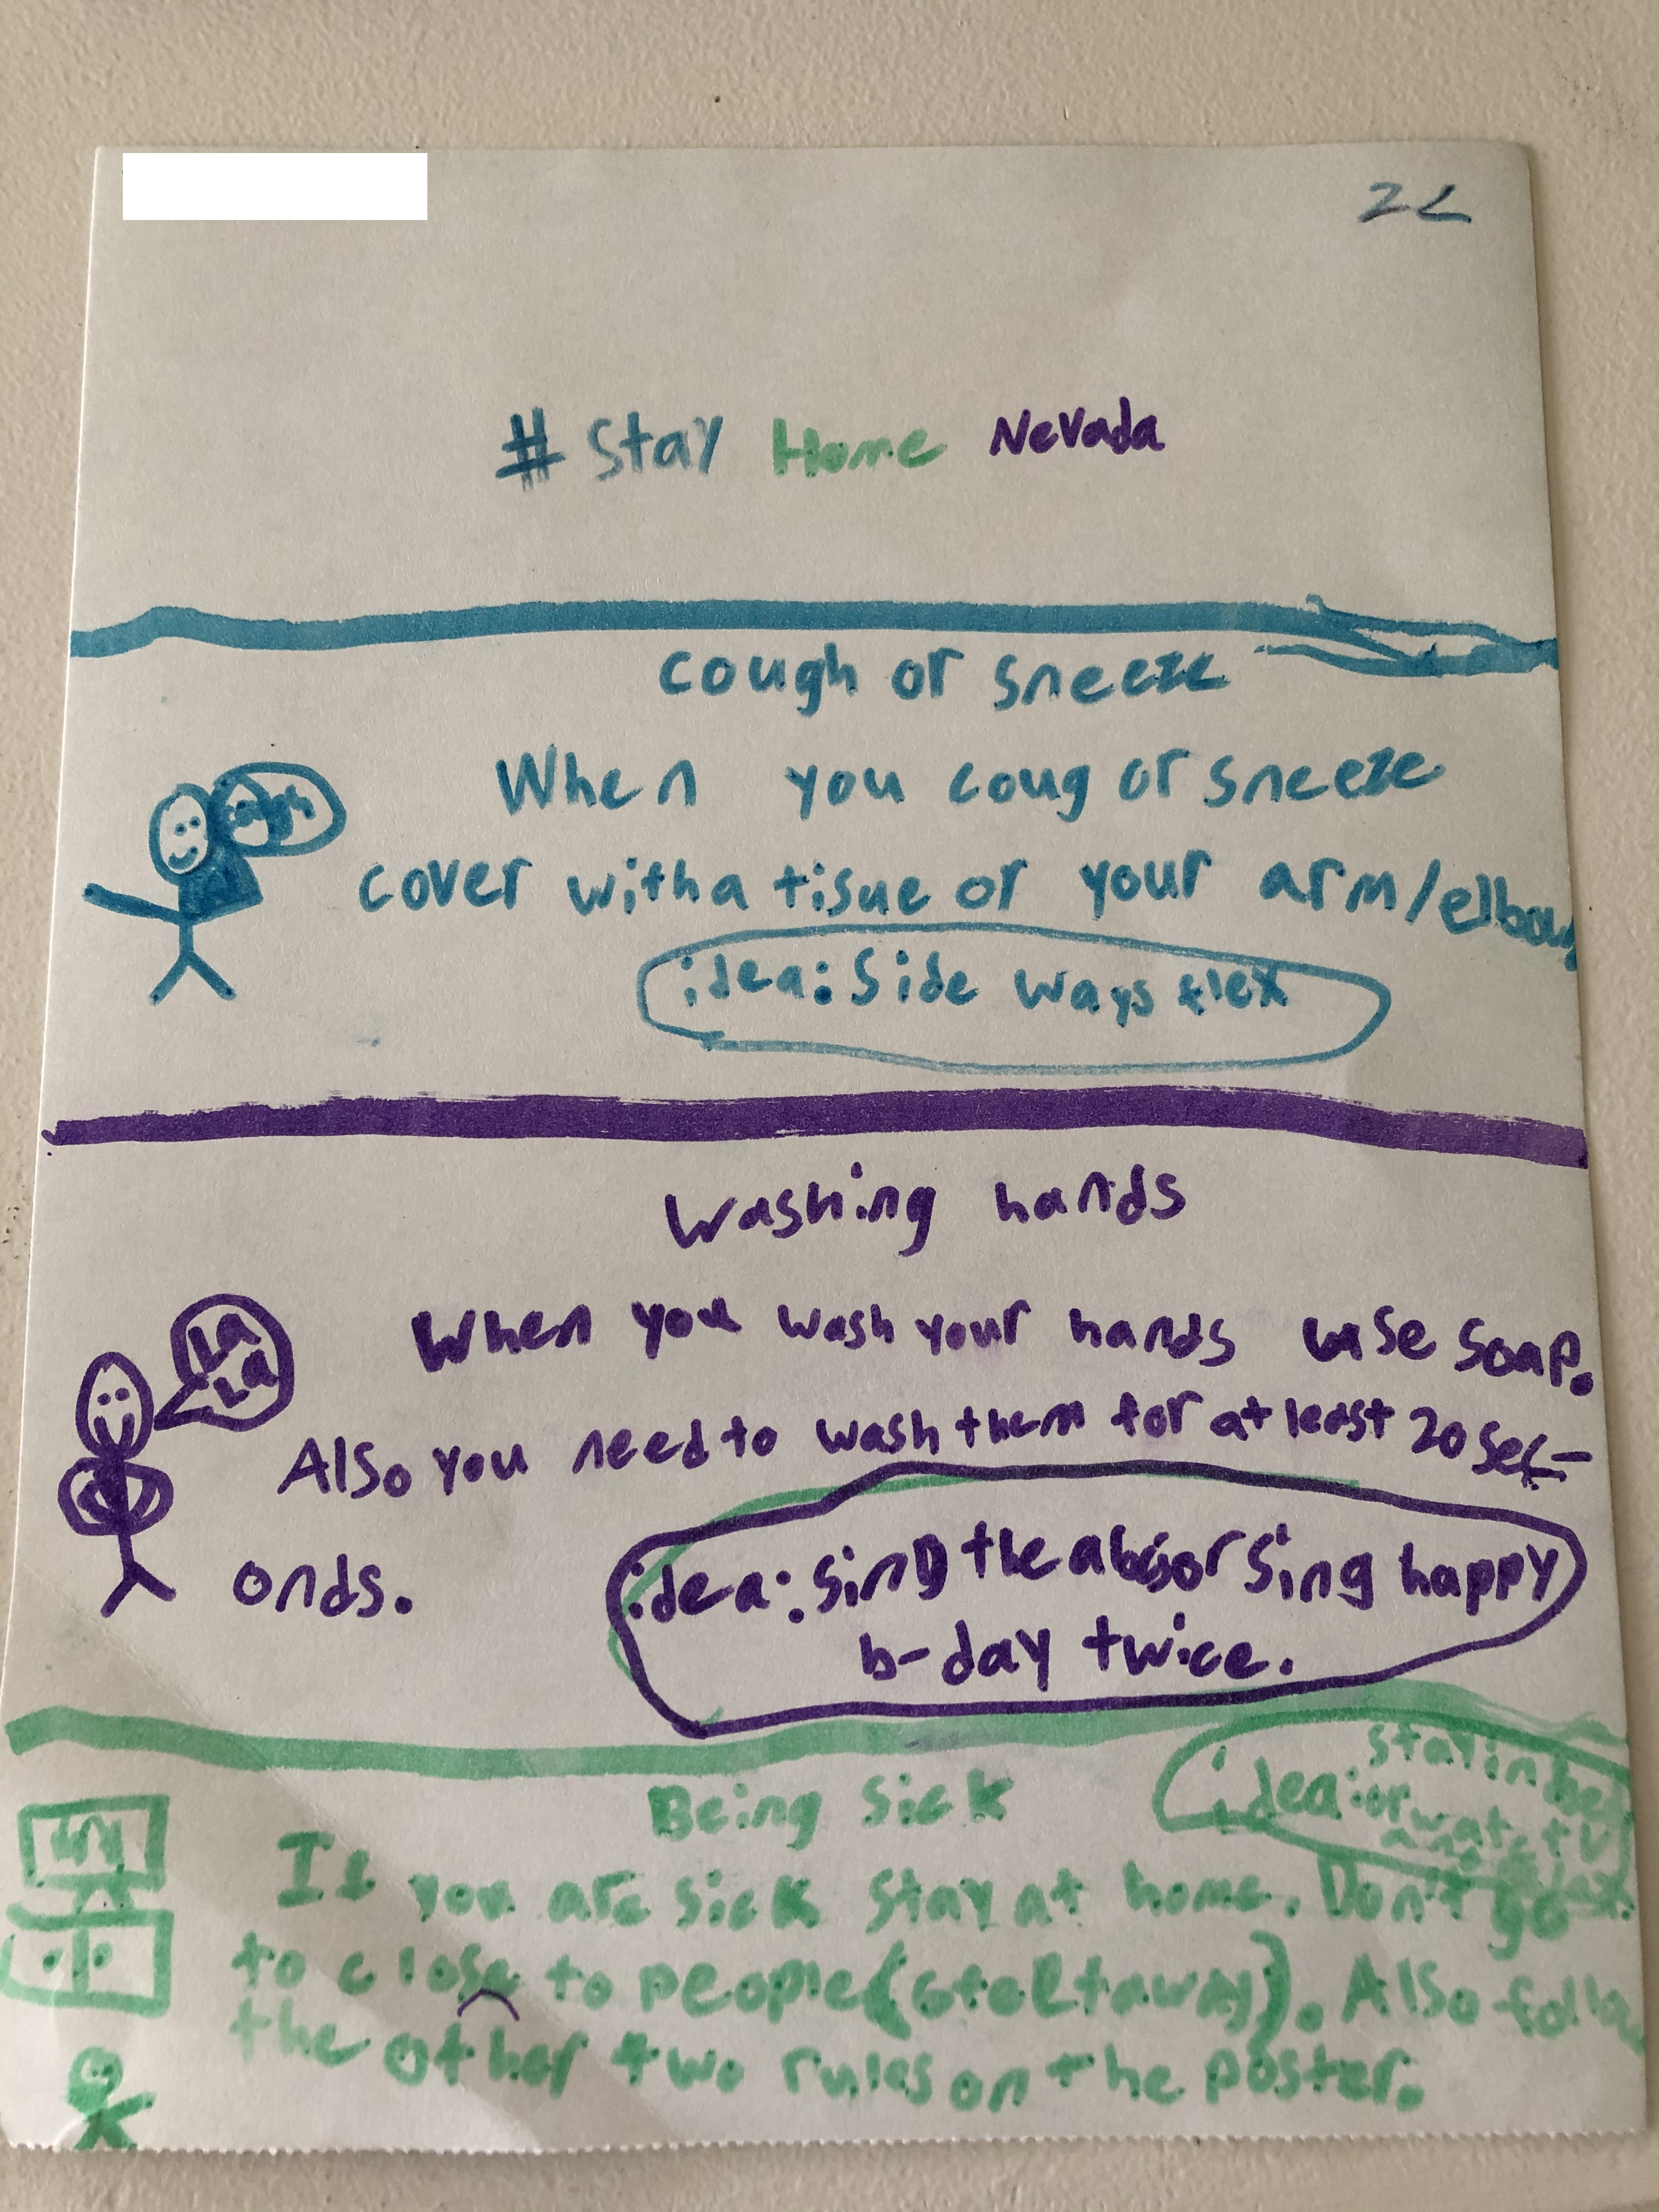 22
# Stay Home Nevada
cough or sneeze
cough
When you coug or sneeze
cover with a tisue or your arm/elbow
idea: Side ways flex
Washing hands
La
La
When you wash your hands use soap.
Also you need to wash them for at least 20 sec-
onds.
idea: sing the abc's or sing happy
b-day twice.
Being sick
stay in bed
idea: or watch tv
and
If you are sick stay at home. Don't go
to close to people (6 feet away). Also follow
the other two rules on the poster.